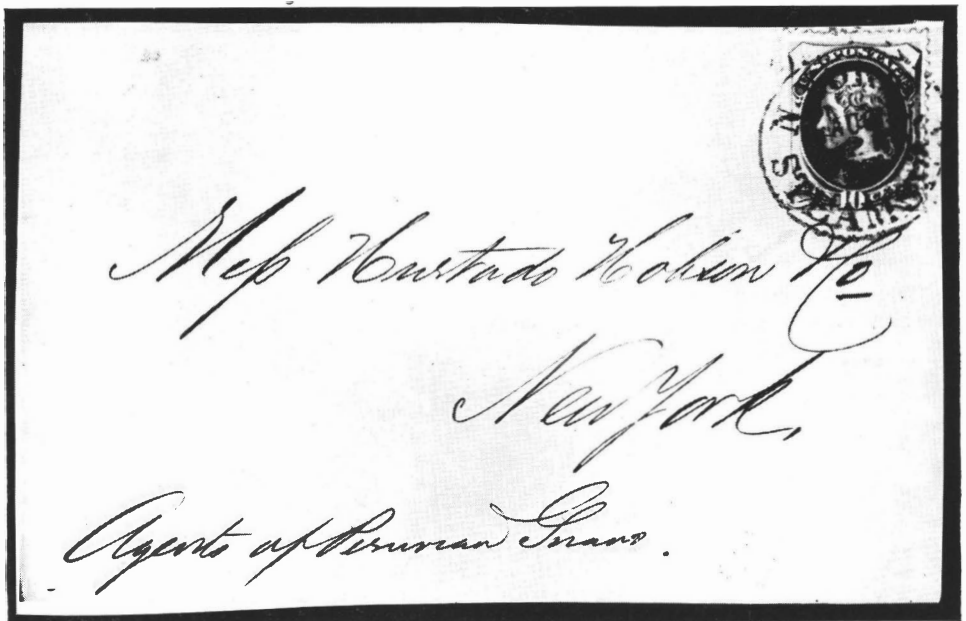 10
Mess Hurtado Hobson & Co
New York.
Agents of Peruvian Guano.